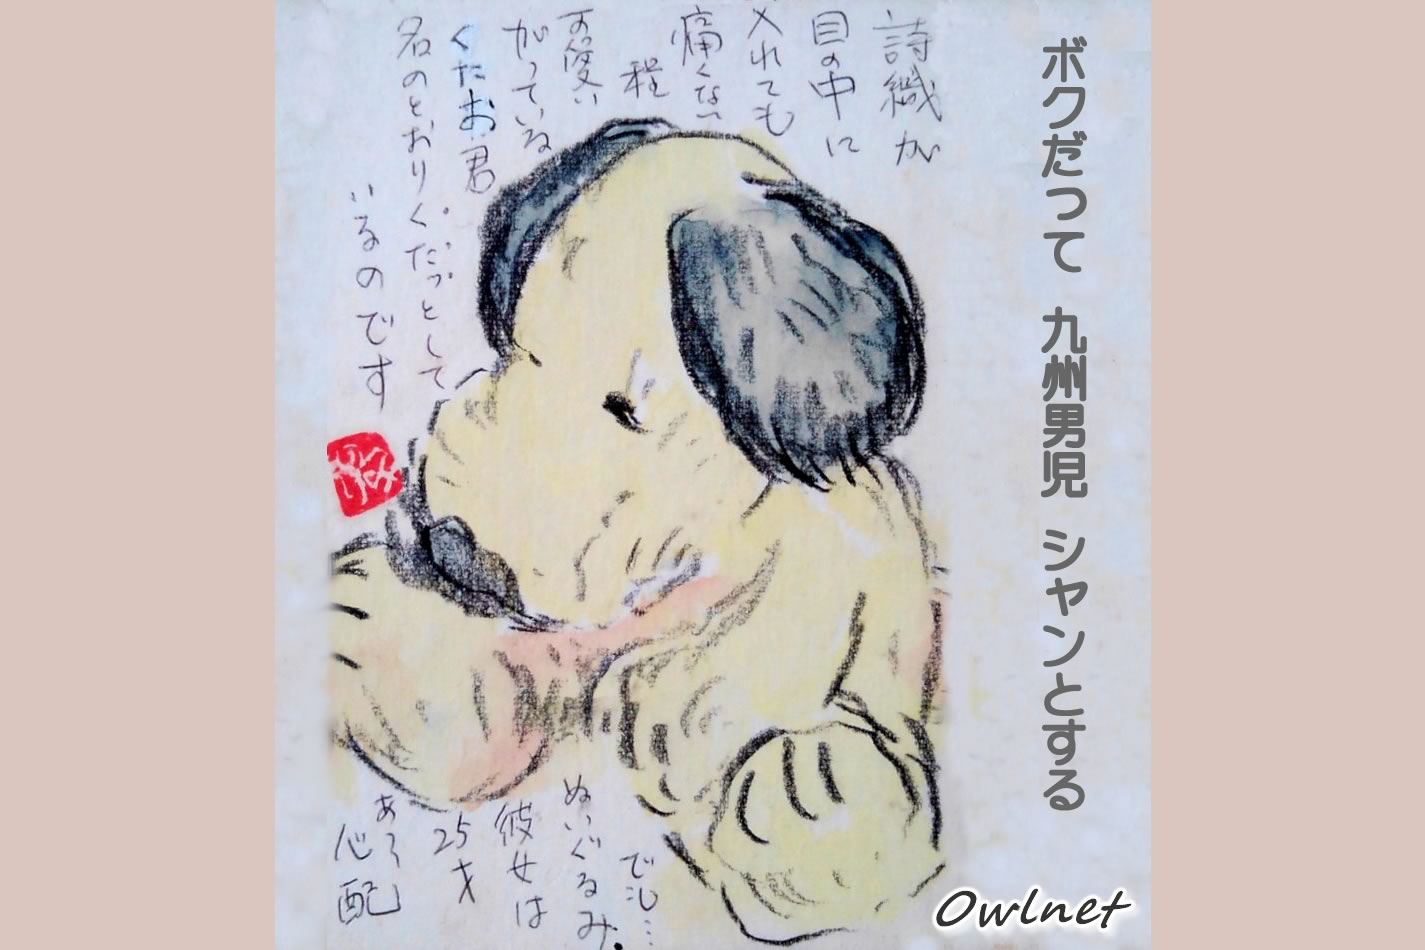 ボクだって 九州男児 シャンとする
詩織が
目の中に
入れても
痛くない
程
可愛い
がっている
くたお君
名のとおりくだっとして
いるのです
でも…
ぬいぐるみ.
彼女は
25才
あろ〜
心配
Owlnet